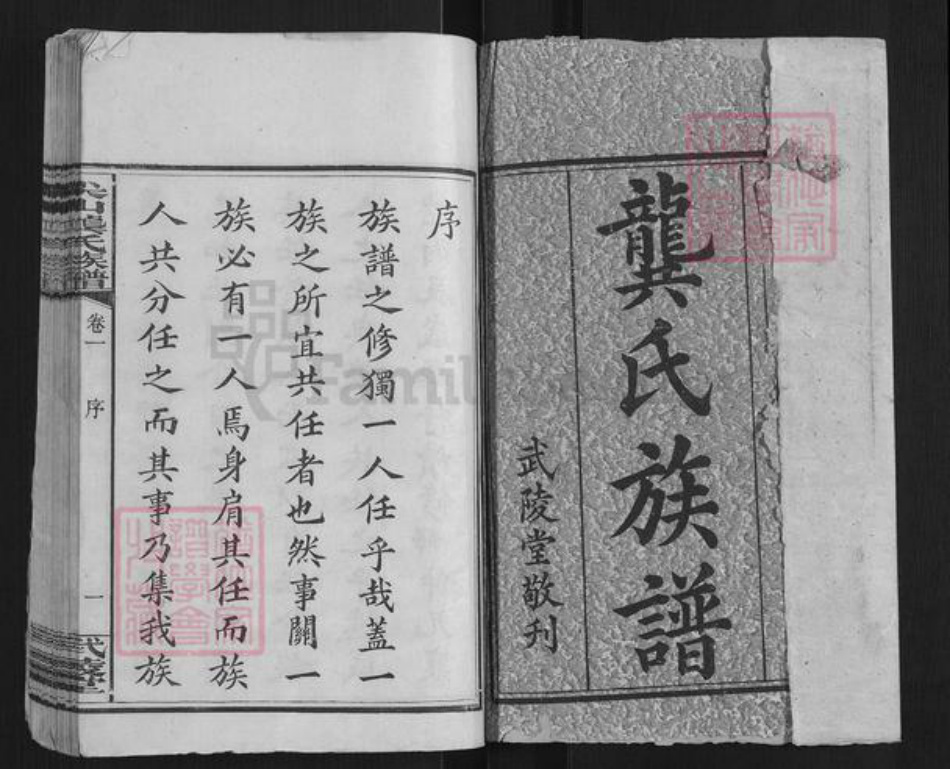 龔氏族譜
武陵堂敬刊
序
族譜之修獨一人任乎哉蓋一
族之所宜共任者也然事關一
族必有一人焉身肩其任而族
人共分任之而其事乃集我族
氏族譜
卷一
序
一